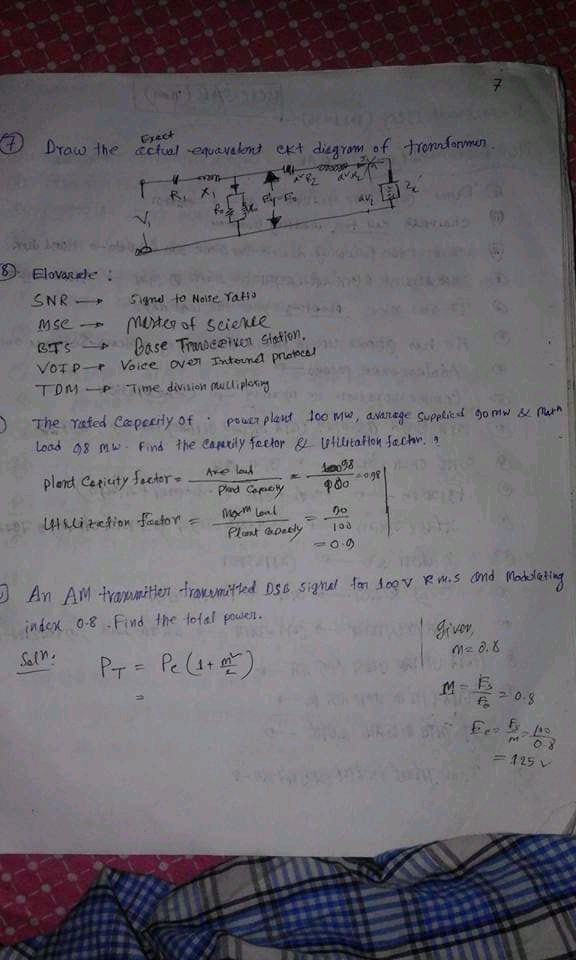 7
7 Draw the exact actual equavalent ckt diagram of transformer.
R1 X1 a²R2 a²X2
V1 R0 X0 aV2
8 Elovarate :
SNR → Signal to Noise ratio
MSC → Master of Science
BTS → Base Transceiver Station.
VOIP → Voice over Internet protocol
TDM → Time division multiplexing
The rated Capacity of : power plant 100 MW, avarage supplied 90 MW & Maxm
Load 98 MW. Find the Capacity factor & Utilization factor. ?
Plant Capicity factor = Ave load / Plant Capacity = 98 / 100 = 0.98
Utilization factor = Maxm Load / Plant Capacity = 90 / 100
= 0.9
An AM transmitter transmitted DSB signal for 100V R.M.S and Modulating
index 0.8. Find the total power.
Soln: PT = Pc (1 + m²/2)
=
Given,
m = 0.8
M = Es / Ec = 0.8
Ec = Es / m = 100 / 0.8
= 125 V